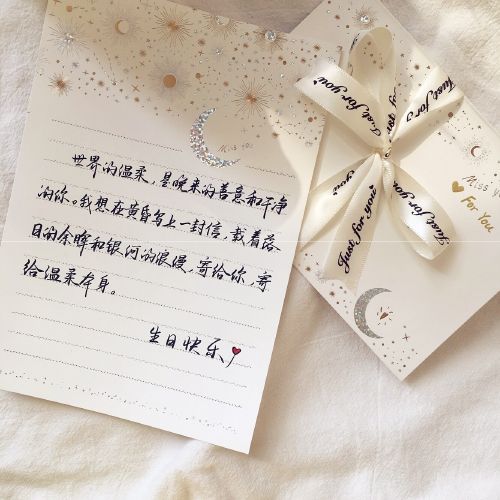 Miss to:
世界的温柔，是晚来的善意和干净
的你。我想在黄昏写上一封信，载着落
日的余晖和银河的浪漫，寄给你，寄
给温柔本身。
生日快乐
Just for you
Just for you
Just for you
Just for you
Just for you
Miss
For You